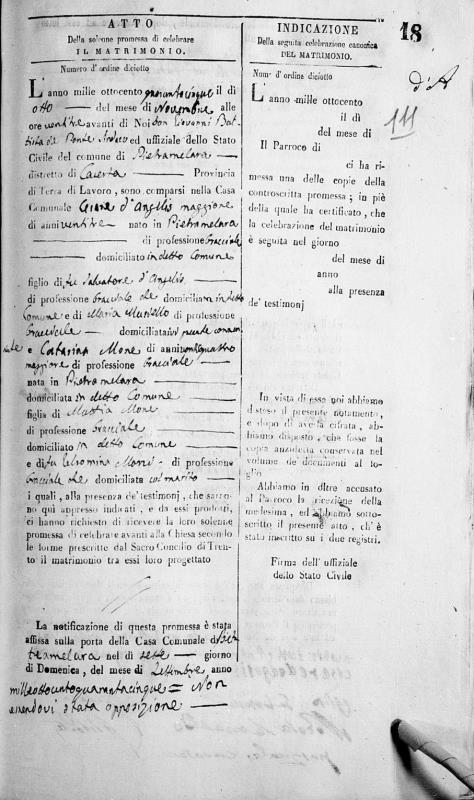 ATTO
Della solenne promessa di celebrare
IL MATRIMONIO.
Numero d' ordine diciotto
L'anno mille ottocento quarantacinque il dì
otto del mese di Novembre alle
ore ventitre avanti di Noi Don Giovanni Bat-
tista de Ponte Sindaco ed uffiziale dello Stato
Civile del comune di Pietramelara
distretto di Caserta Provincia
di Terra di Lavoro, sono comparsi nella Casa
Comunale d'Angelis maggiore
di anni ventitre nato in Pietramelara
di professione bracciale
domiciliato in detto Comune
figlio di fu Salvatore d'Angelis
di professione bracciale domiciliato in detto
Comune e di Maria di professione
bracciale domiciliata
e Catarina Mone di anni ventiquattro
maggiore di professione bracciale
nata in Pietramelara
domiciliata in detto Comune
figlia di Mattia Mone
di professione bracciale
domiciliato in detto Comune
e di di professione
bracciale domiciliata col marito
i quali, alla presenza de' testimonj, che saran-
no quì appresso indicati, e da essi prodotti,
ci hanno richiesto di ricevere la loro solenne
promessa di celebrare avanti alla Chiesa secondo
le forme prescritte dal Sacro Concilio di Tren-
to il matrimonio tra essi loro progettato
La notificazione di questa promessa è stata
affissa sulla porta della Casa Comunale di Pie-
tramelara nel dì sette giorno
di Domenica, del mese di Settembre anno
milleottocentoquarantacinque = Non
essendovi stata opposizione
18
d'A
111
INDICAZIONE
Della seguita celebrazione canonica
DEL MATRIMONIO.
Num. d' ordine diciotto
L'anno mille ottocento
il dì
del mese di
Il Parroco di
ci ha ri-
messa una delle copie della
controscritta promessa; in piè
della quale ha certificato, che
la celebrazione del matrimonio
è seguita nel giorno
del mese di
anno
alla presenza
de' testimonj
In vista di esso noi abbiamo
disteso il presente notamento,
e dopo di averla cifrata, ab-
biamo disposto, che fosse la
copia anzidetta conservata nel
volume de documenti al fo-
glio
Abbiamo in oltre accusato
al Parroco la ricezione della
medesima, ed abbiamo sotto-
scritto il presente atto, ch' è
stato inscritto su i due registri.
Firma dell' uffiziale
dello Stato Civile